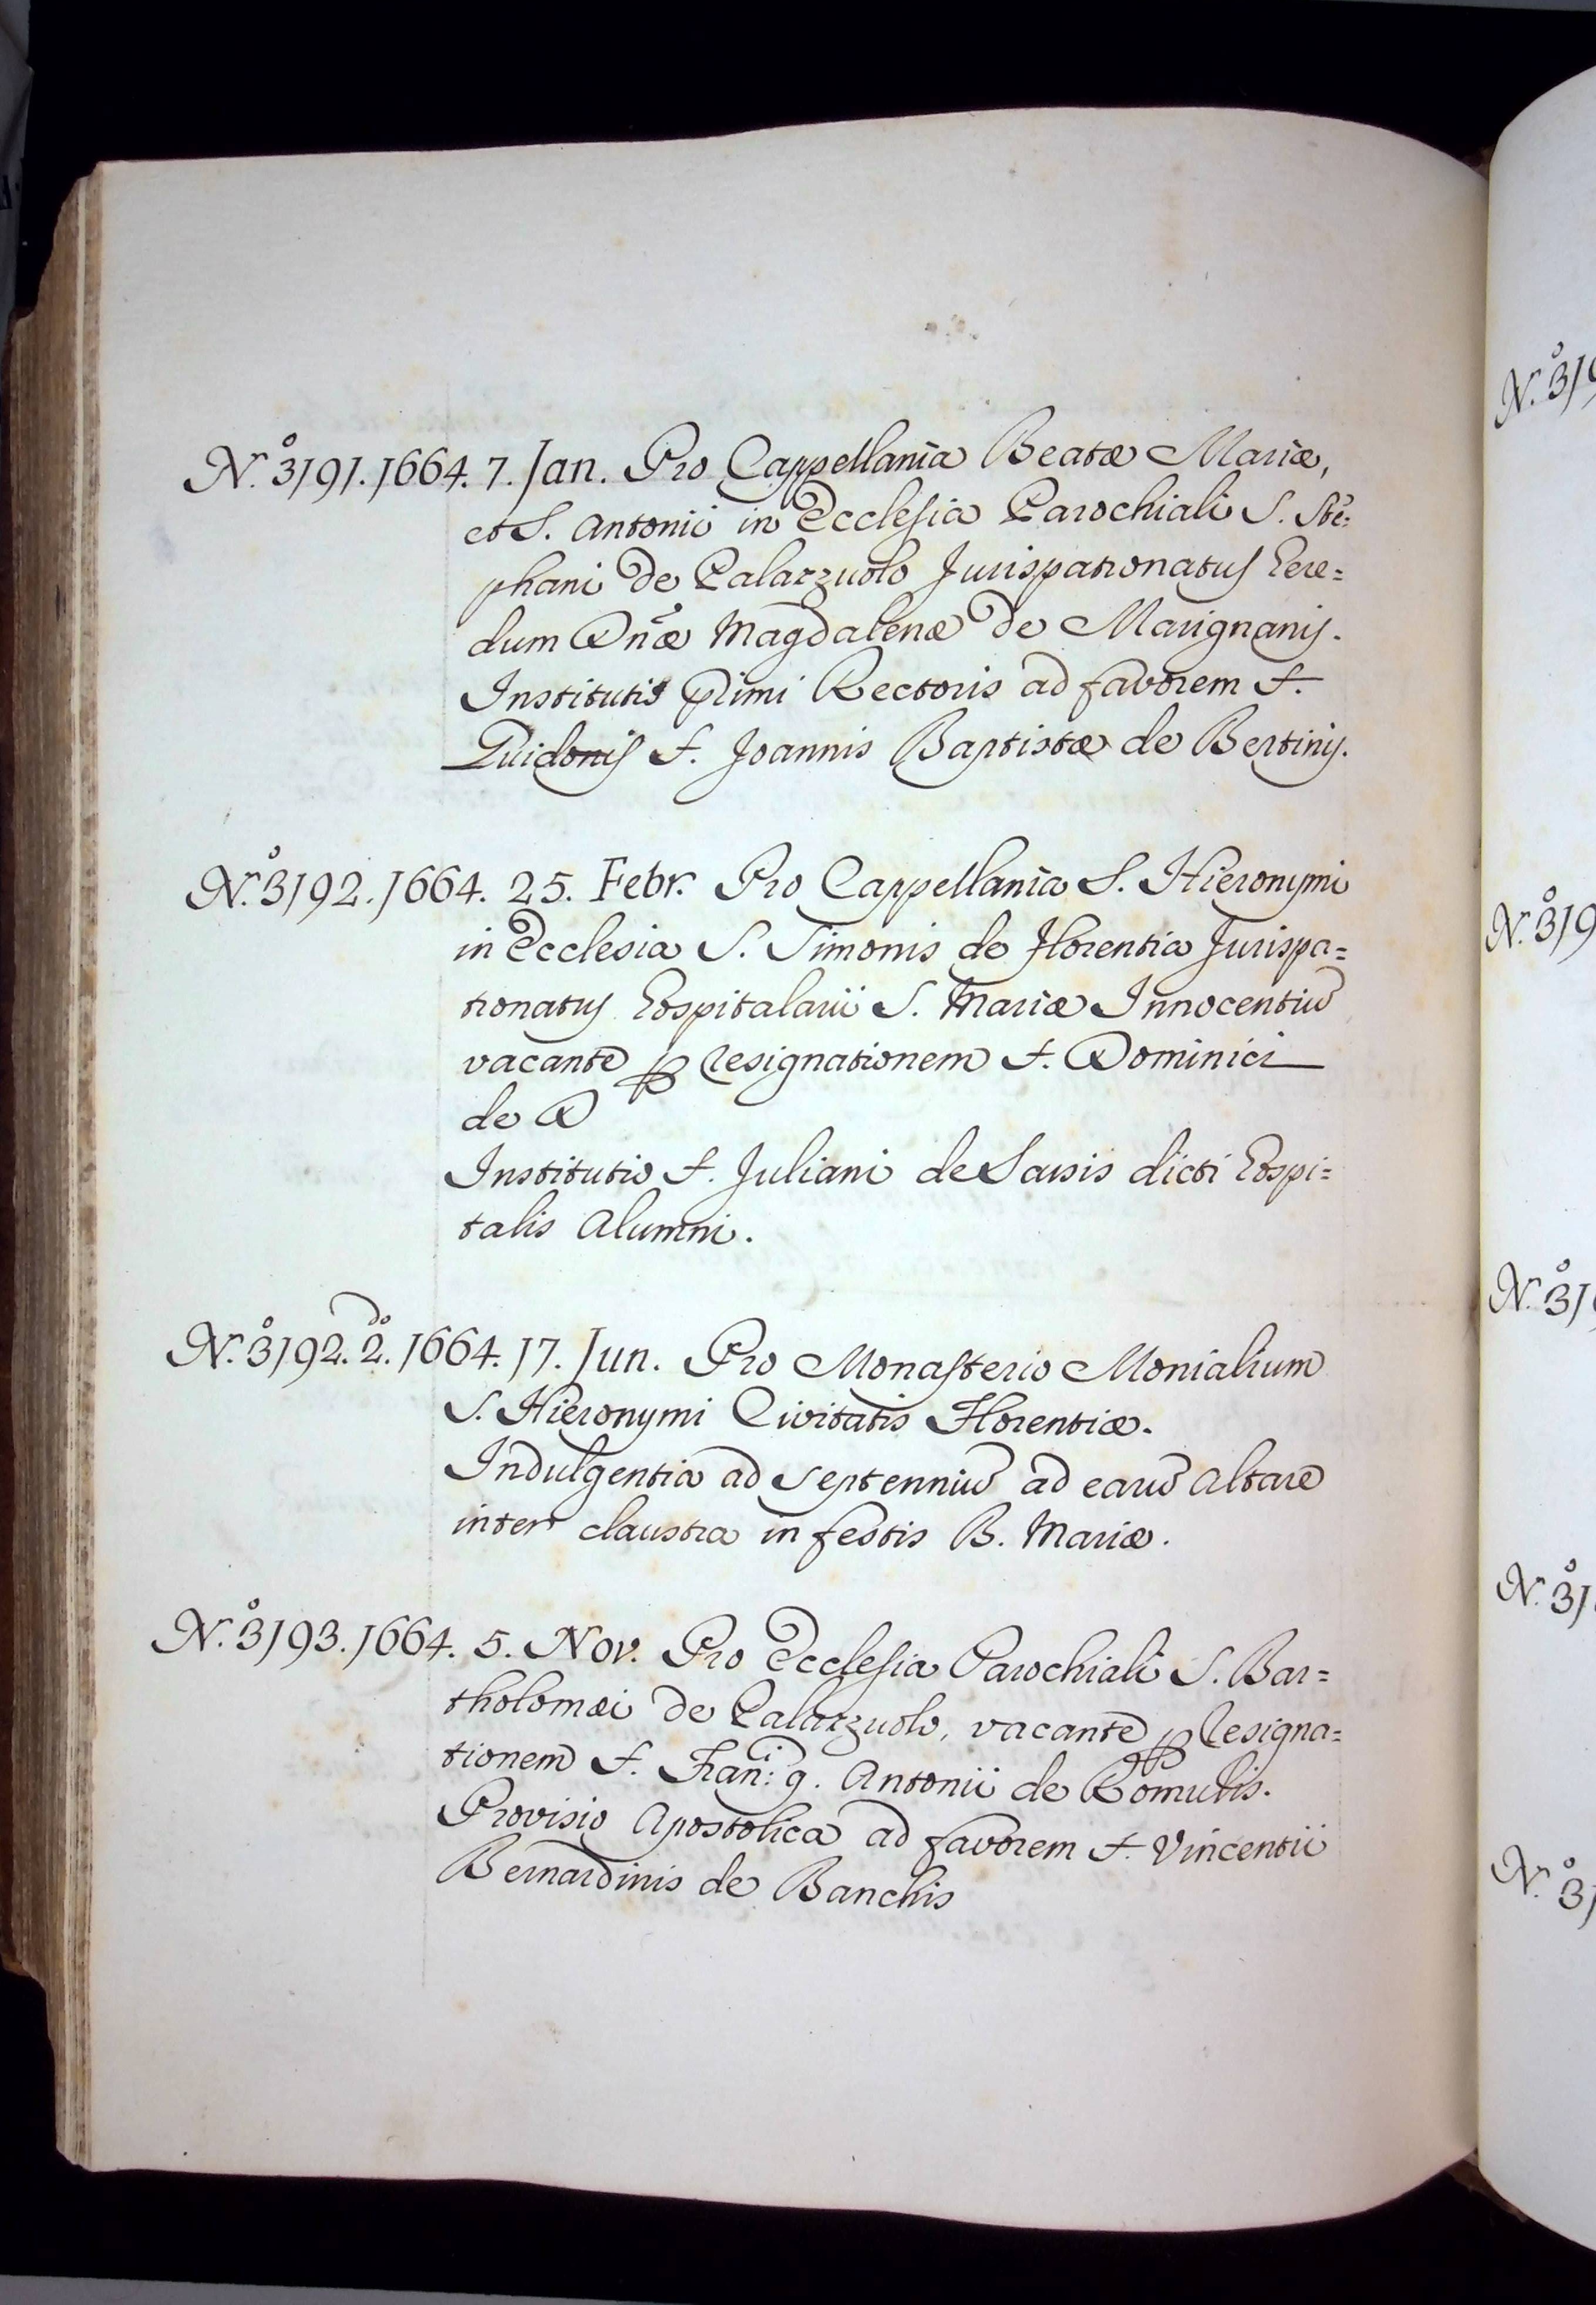 N.º 3191. 1664. 7. Jan. Pro Cappellania Beatæ Mariæ,
et S. Antonii in Ecclesia Parochiali S. Ste=
phani de Palazzuolo Jurispatronatus Here=
dum Dnæ Magdalenæ de Marignanis.
Institutio primi Rectoris ad favorem f.
Guidonis f. Joannis Baptistæ de Bertinis.
N.º 3192. 1664. 25. Febr. Pro Cappellania S. Hieronymi
in Ecclesia S. Simonis de Florentia Jurispa=
tronatus Hospitalarii S. Mariæ Innocentiū
vacante p Resignationem f. Dominici
de D
Institutio f. Juliani de Sassis dicti Hospi=
talis Alumni.
N.º 3192. 2.do 1664. 17. Jun. Pro Monasterio Monialium
S. Hieronymi Civitatis Florentiæ.
Indulgentia ad Septenniū ad earū Altare
inter claustra in festis B. Mariæ.
N.º 3193. 1664. 5. Nov. Pro Ecclesia Parochiali S. Bar=
tholomæi de Palazzuolo, vacante p Resigna=
tionem f. Fran:ci q. Antonii de Romulis.
Provisio Apostolica ad favorem f. Vincentii
Bernardinis de Banchis
N.º 319
N.º 319
N.º 31
N.º 31
N.º 31